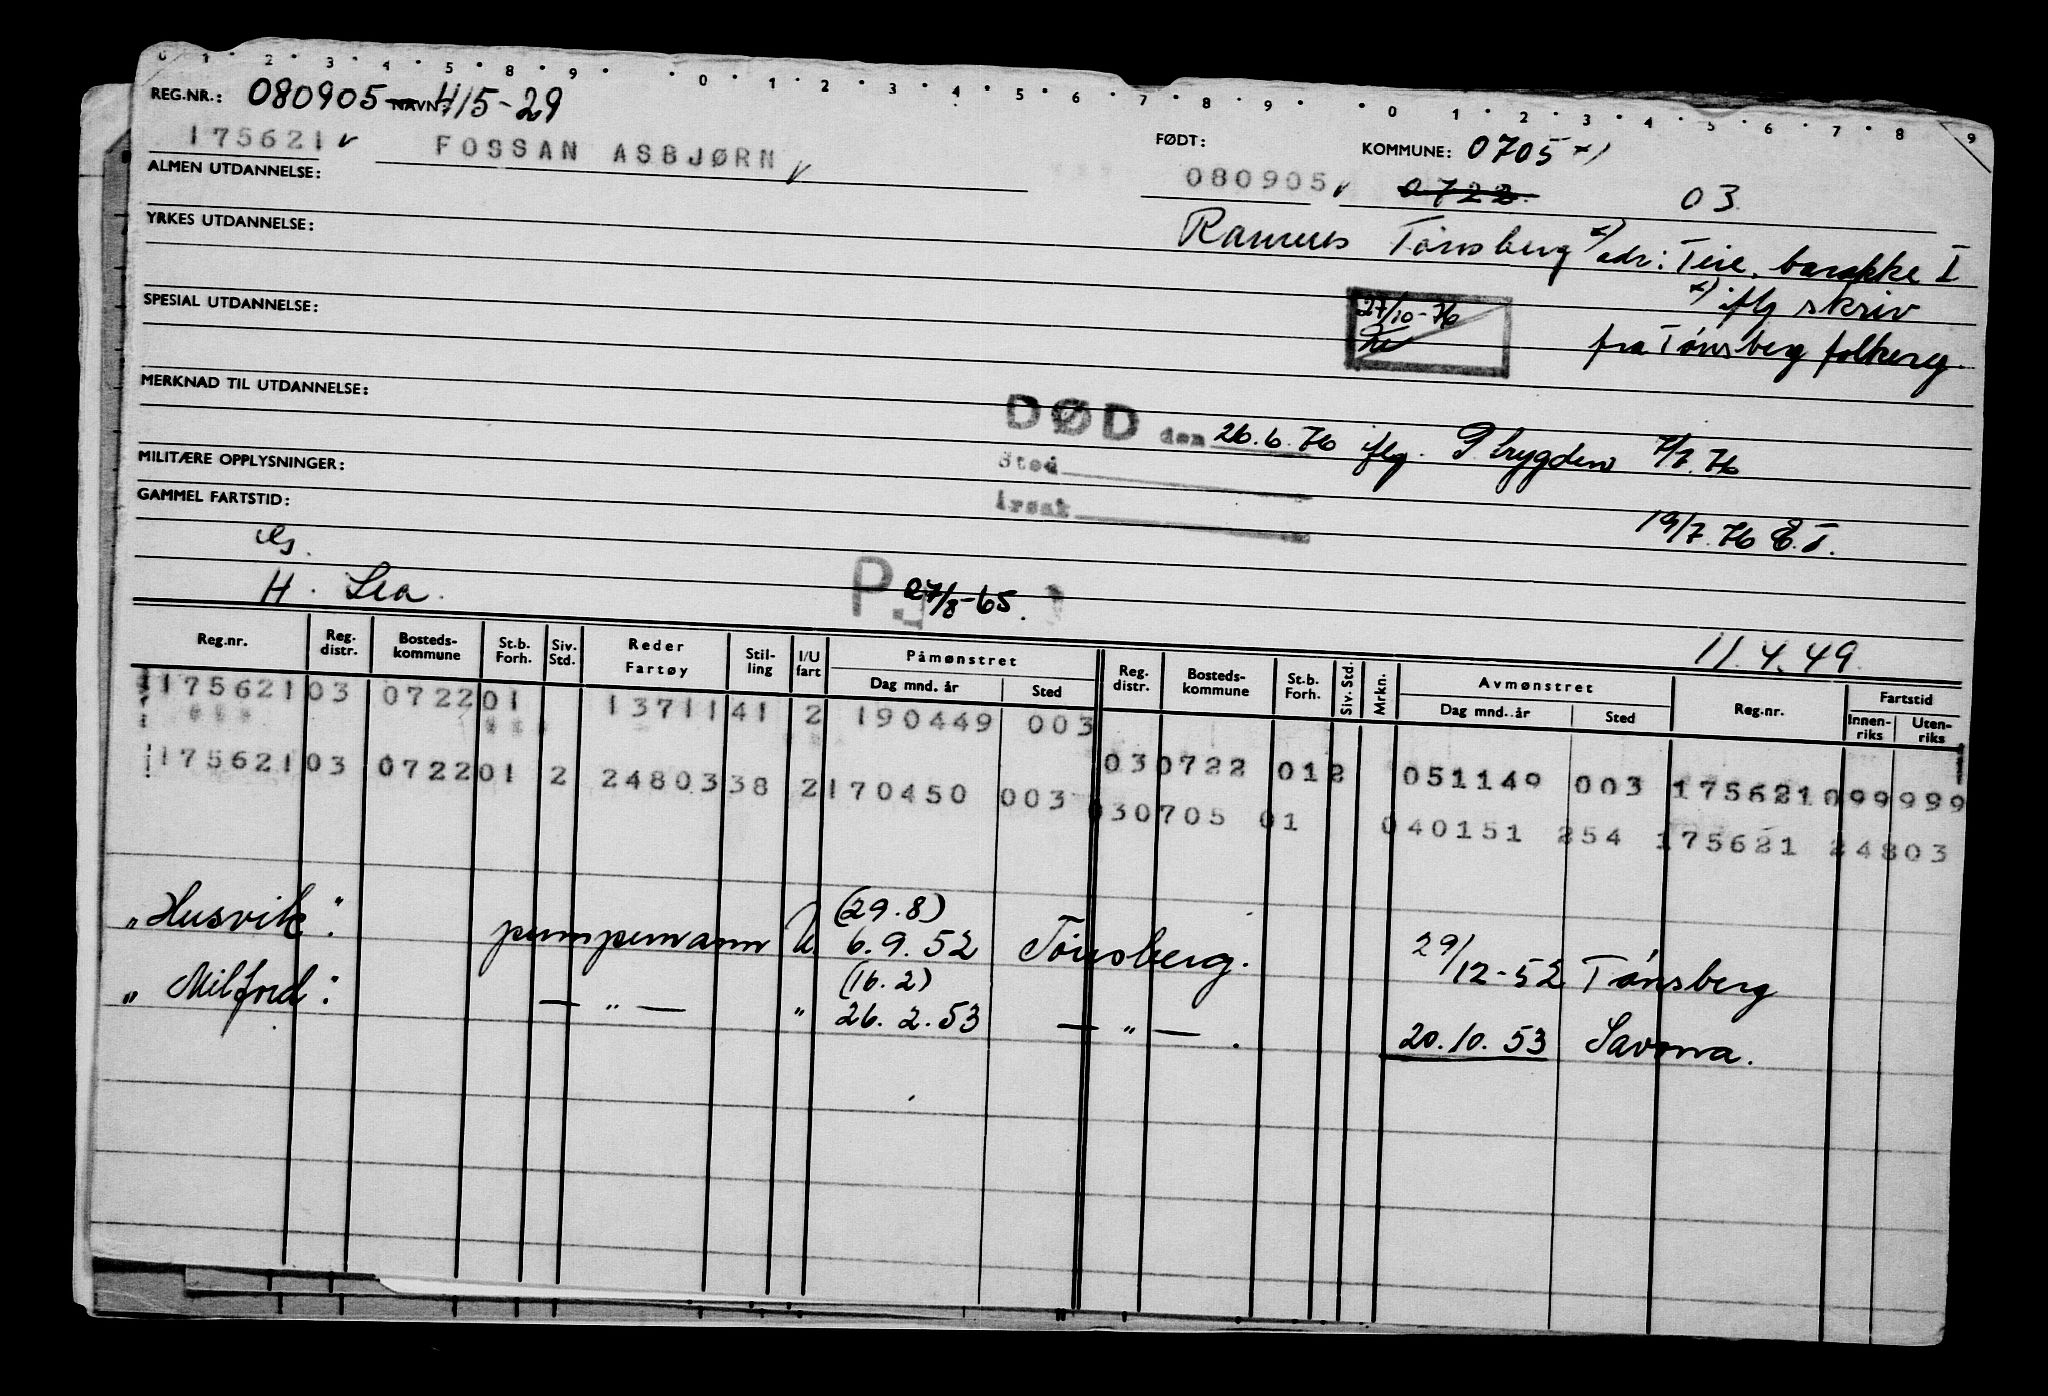 0 1 2 3 4 5 8 9 0 1 2 3 4 5 6 7 8 9 0 1 2 3 4 5 6 7 8 9
REG.NR.: 080905 NAVN: 415-29
175621 FOSSAN ASBJØRN FØDT: 080905 KOMMUNE: 0705 x)
0722 03
ALMEN UTDANNELSE:
YRKES UTDANNELSE: Ramnes Tønsberg x) adr: Teie, barakke I
x) iflg skriv
SPESIAL UTDANNELSE: 27/10-76 fra Tønsberg folkereg.
MERKNAD TIL UTDANNELSE:
DØD den 26.6.76 iflg. P.trygden 7/7.76
MILITÆRE OPPLYSNINGER: Sted
GAMMEL FARTSTID: Årsak 19/7.76 E.T.
H. Sea. P 27/8-65.
11.4.49.
Reg.nr. Reg. distr. Bosteds-kommune St.b. Forh. Siv. Std. Reder Fartøy Stil-ling I/U fart Påmønstret Dag mnd. år Sted Reg. distr. Bosteds-kommune St.b. Forh. Siv. Std. Mrkn. Avmønstret Dag mnd. år Sted Reg.nr. Fartstid Innen-riks Uten-riks
175621 03 0722 01 13711 41 2 190449 003
03 0722 01 2 051149 003 175621 099 999
175621 03 0722 01 2 24803 38 2 170450 003
030705 01 040151 254 175621 24803
"Husvik". pumpemann U. (29.8) 6.9.52 Tønsberg. 29/12-52 Tønsberg
"Milford". — " — " (16.2) 26.2.53 — " — . 20.10.53 Savona.